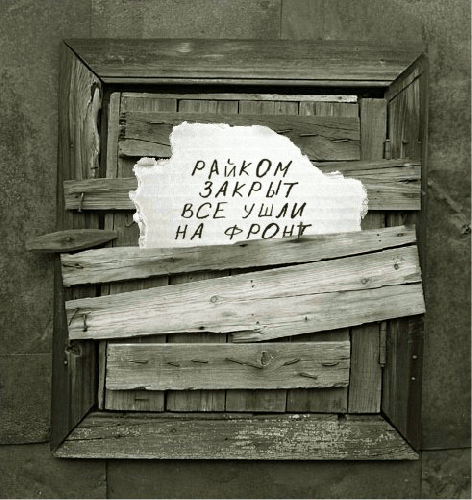 РАЙКОМ
ЗАКРЫТ
ВСЕ УШЛИ
НА ФРОНТ